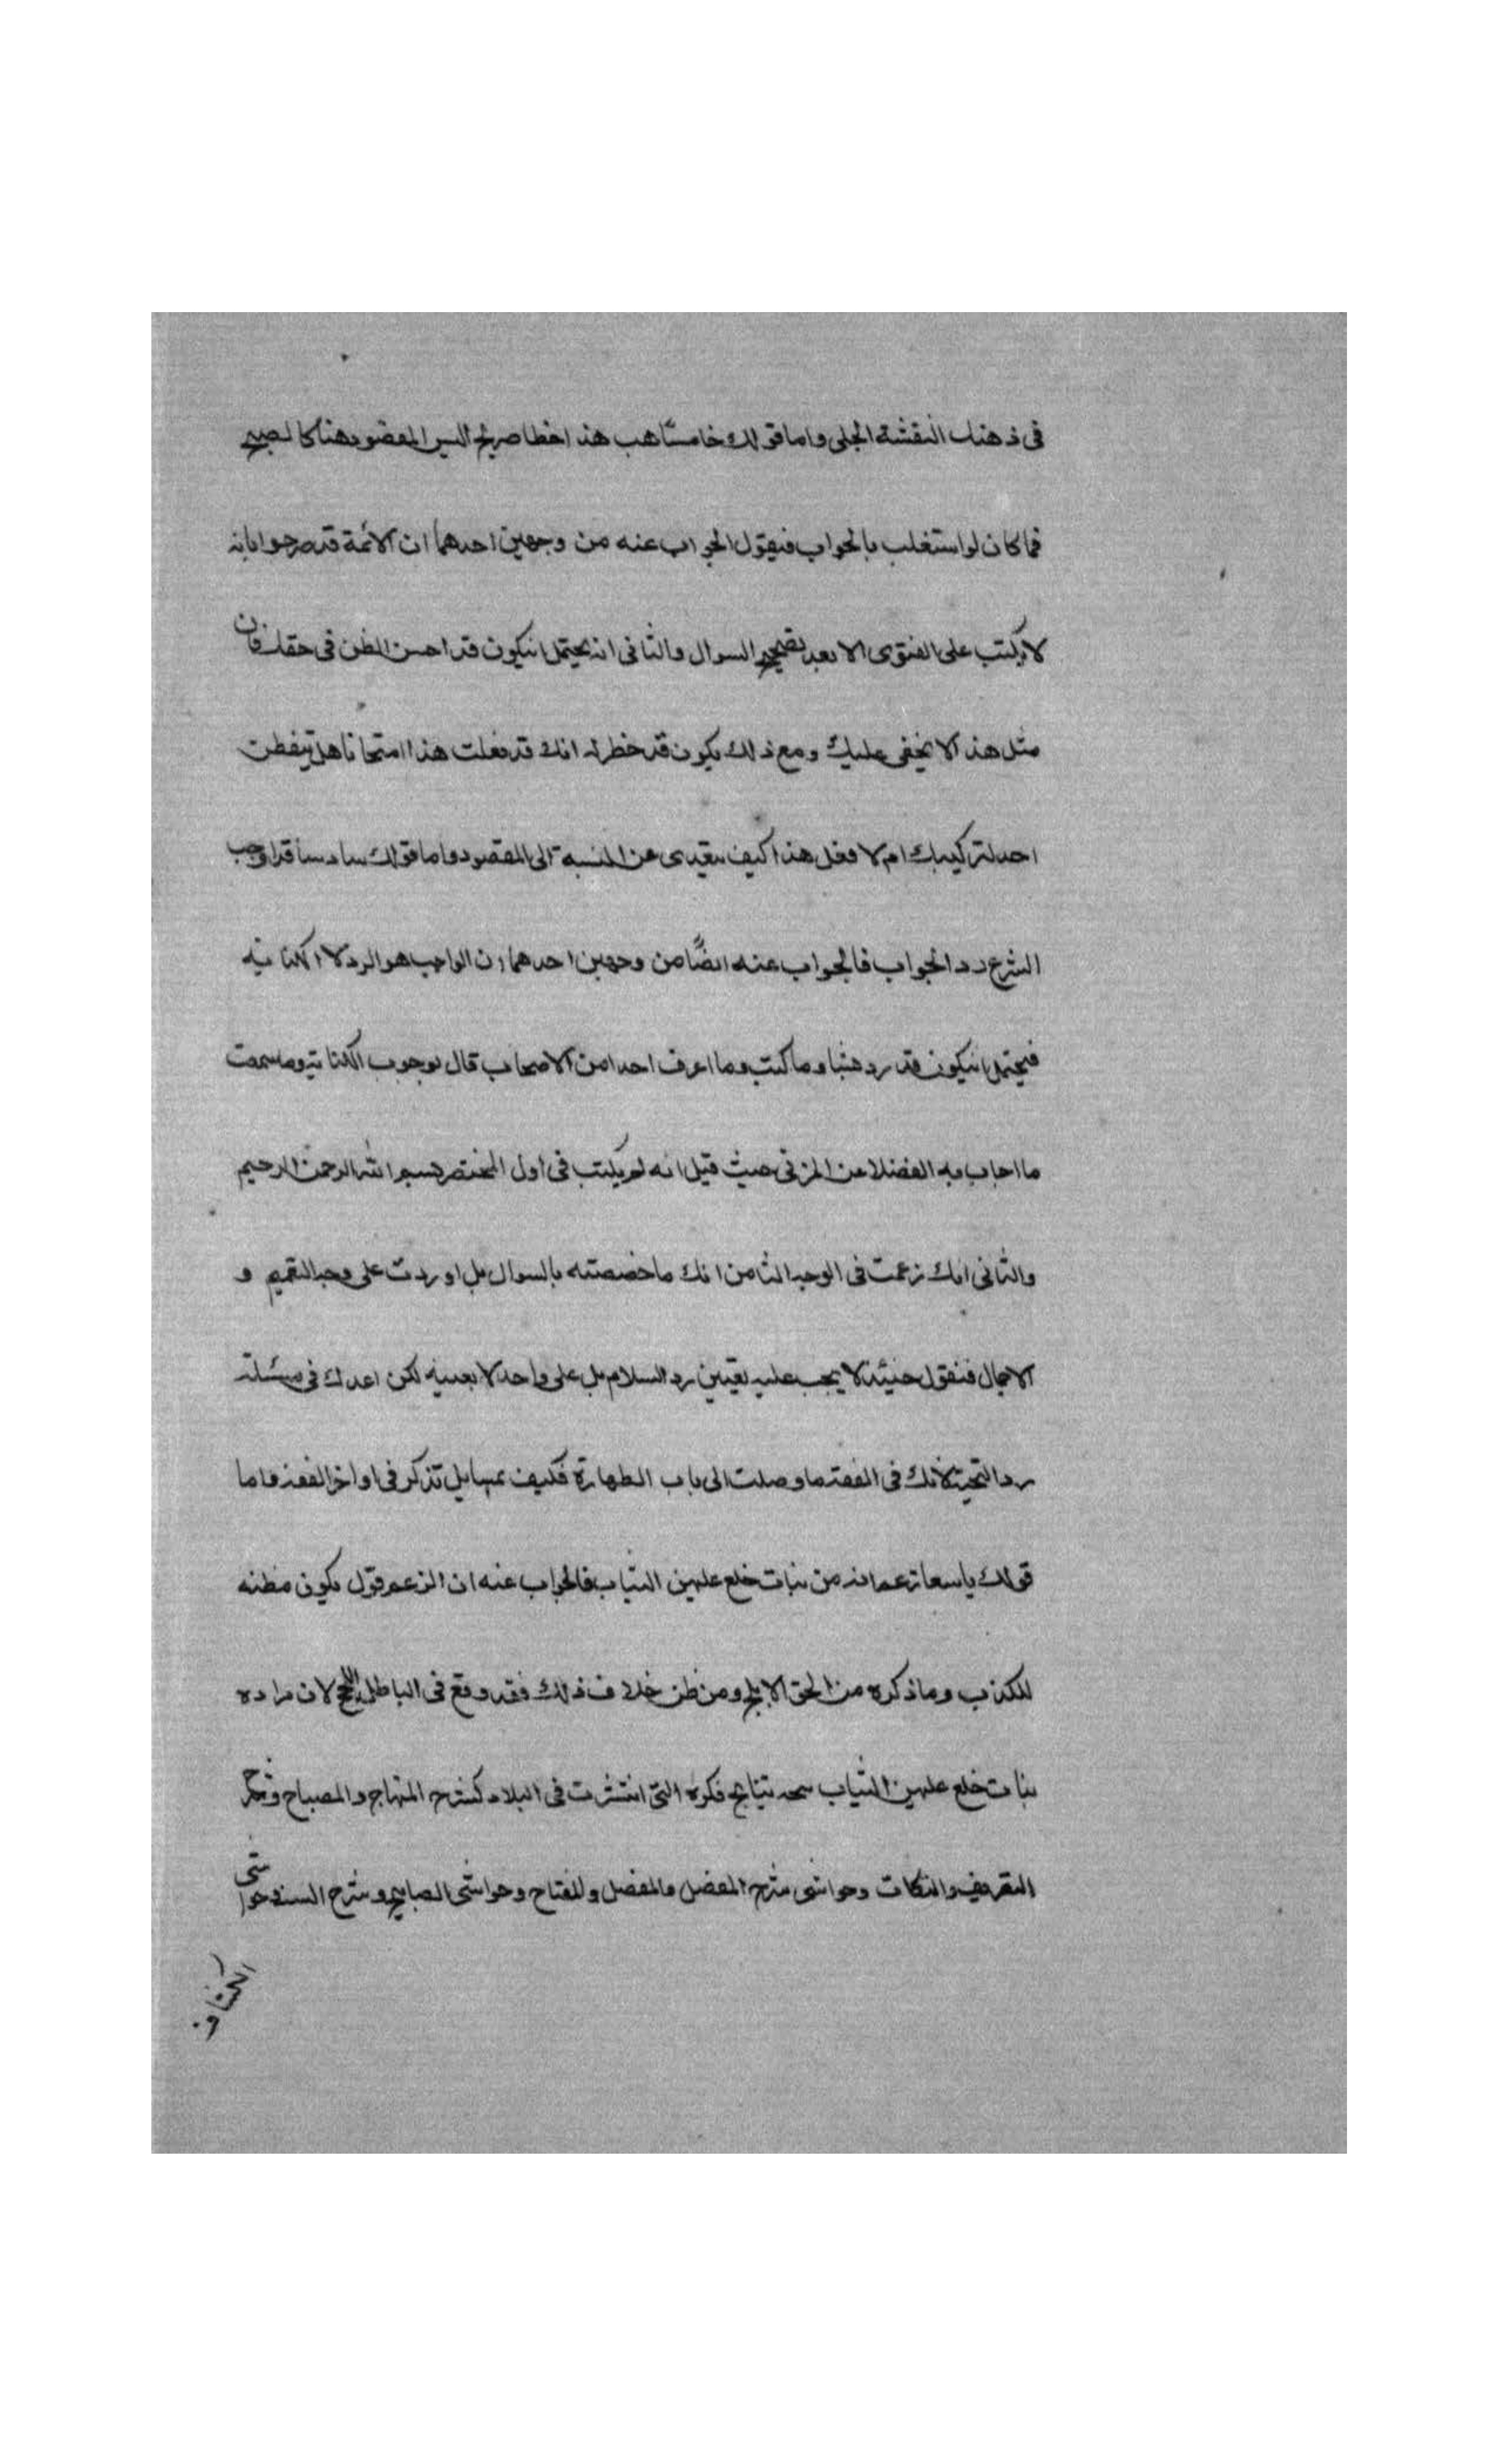 في ذهنك النقشة الجلي واما قولك خامسا هب هذا خطا صريح اليس المقصود هنا كالصبح
فما كان لو استغلب بالجواب فيقول الجواب عنه من وجهين احدهما ان الائمة قد صرحوا بانه
لا يكتب على الفتوى الا بعد تصحيح السوال والثاني انه يحتمل ان يكون قد احسن الظن في حقك فان
مثل هذا لا يخفى عليك ومع ذلك يكون قد خطر له انك قد فعلت هذا امتحانا هل تيفطن
احد لتركيبك ام لا فعل هذا كيف بعيد عن النسبة الى المقصود واما قولك سادسا قد اوجب
الشرع رد الجواب فالجواب عنه ايضًا من وجهين احدهما ان الواجب هو الرد لا الكتابة
فيحتمل ان يكون قد رد هنا وما كتب وما اعرف احدا من الاصحاب قال بوجوب الكتابة وما سمعت
ما اجاب به الفضلا عن المزني حيث قيل انه لم يكتب في اول المختصر بسم الله الرحمن الرحيم
والثاني انك زعمت في الوجه الثامن انك ما خصصته بالسوال بل اوردت على وجه التعميم و
الاجمال فنقول حنيئذ لا يجب عليه بعينه رد السلام بل على واحد لا بعينه لكن اعدك في مسئلة
رد التحية لانك في الفقه ما وصلت الى باب الطهارة فكيف بمسايل تذكر في اواخر الفقه واما
قولك يا سعا زعم انه من بنات خلع عليهن الثياب فالجواب عنه ان الزعم قول يكون مظنه
للكذب وما ذكره من الحق الابلج ومن ظن خلاف ذلك فقد وقع في الباطل اللجلج لان مراده
بنات خلع عليهن الثياب نتايج فكره التي انتشرت في البلاد كشرح المنهاج والمصباح وشرح
التصريف والنكات وحواشي شرح المفصل والمفصل والمفتاح وحواشي المصابيح وشرح السنة وحواشي
الكشاف